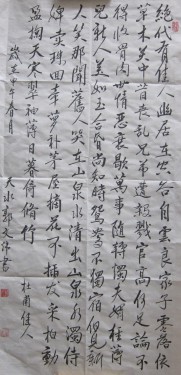 絕代有佳人幽居在空谷自云良家子零落依
草木關中昔喪亂兄弟遭殺戮官高何足論不
得收骨肉世情惡衰歇萬事隨轉燭夫婿輕薄
兒新人美如玉合昏尚知時鴛鴦不獨宿但見新
人笑那聞舊人哭在山泉水清出山泉水濁侍
婢賣珠回牽蘿補茅屋摘花不插髮采柏動
盈掬天寒翠袖薄日暮倚修竹 杜甫佳人
甲午春月 天水郭文書